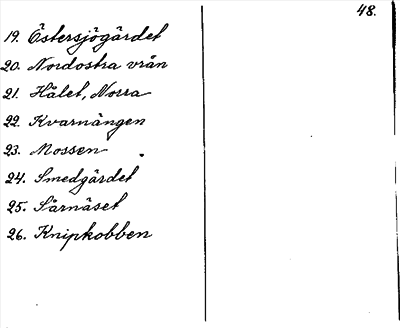 48.
19. Östersjögärdet
20. Nordostra vrån
21. Hålet, Norra
22. Kvarnängen
23. Mossen
24. Smedgärdet
25. Särnäset
26. Knipkobben